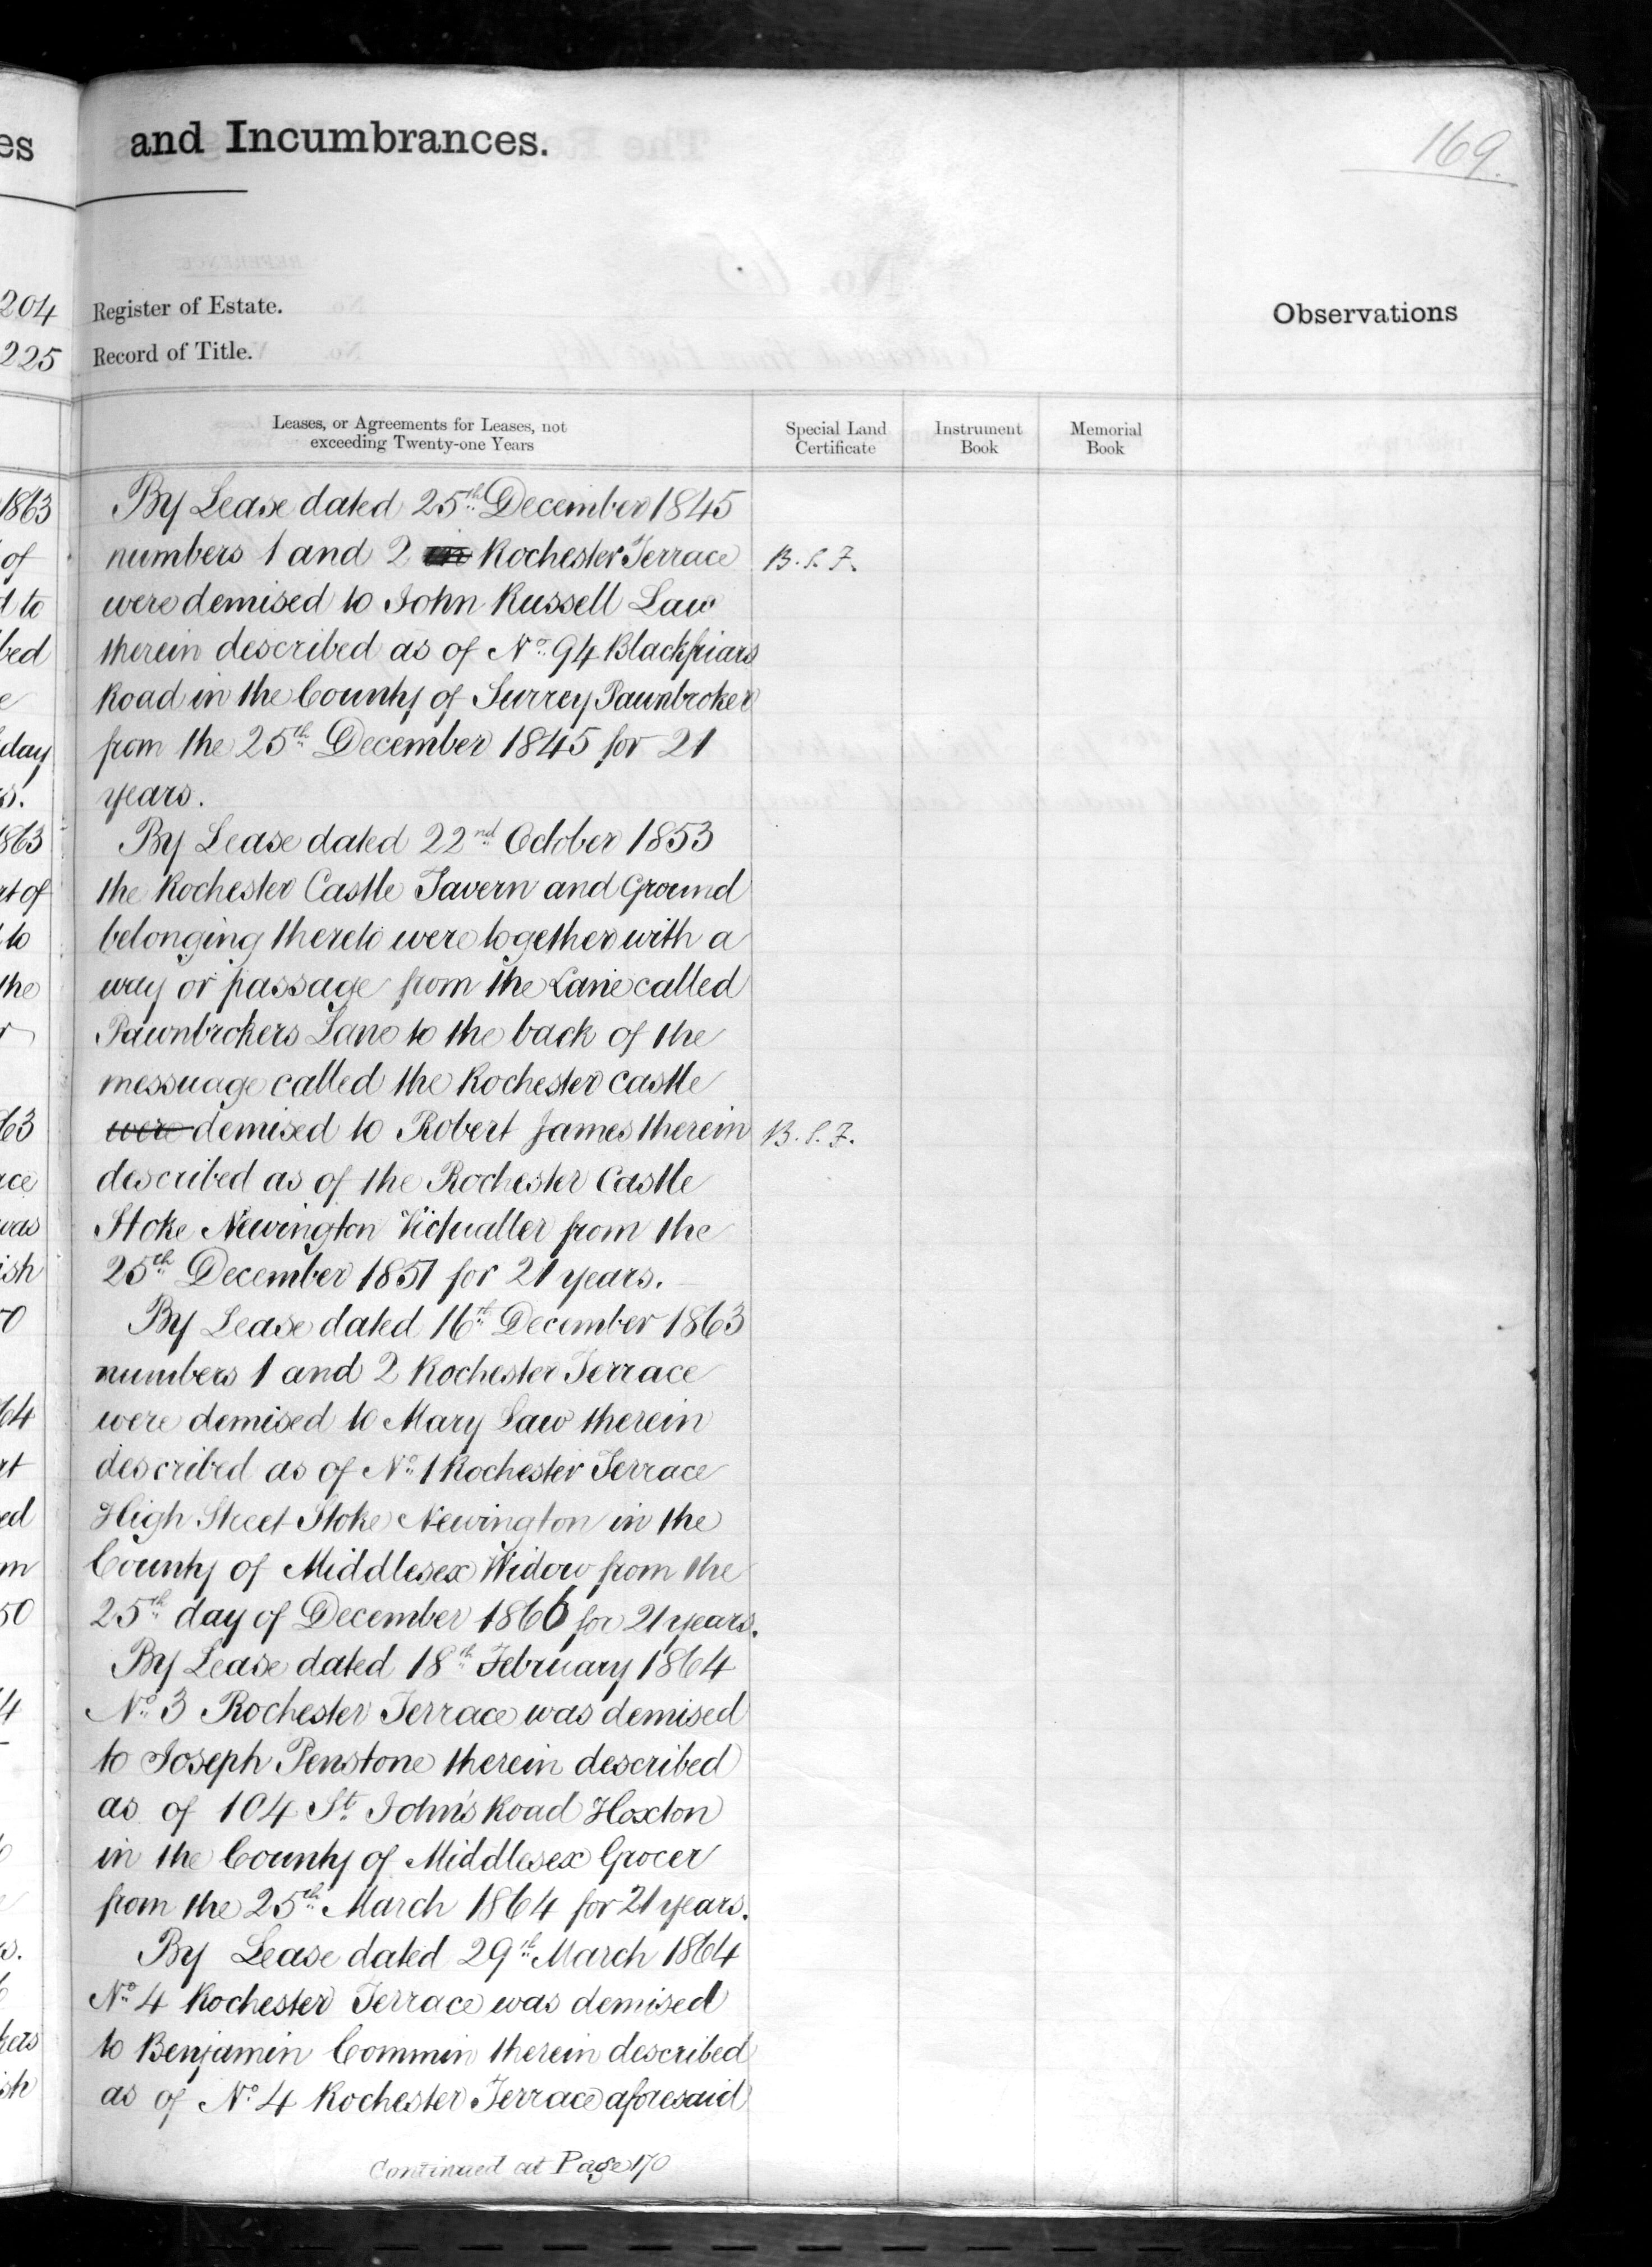 es
and Incumbrances.
169.
204
Register of Estate.
Observations
225
Record of Title.
Leases, or Agreements for Leases, not
exceeding Twenty-one Years
Special Land
Certificate
Instrument
Book
Memorial
Book
By Lease dated 25th December 1845
numbers 1 and 2 in Rochester Terrace
B.S.F.
were demised to John Russell Law
therein described as of No. 94 Blackfriars
Road in the County of Surrey Pawnbroker
from the 25th December 1845 for 21
years.
By Lease dated 22nd October 1853
the Rochester Castle Tavern and Ground
belonging thereto were together with a
way or passage from the Lane called
Pawnbrokers Lane to the back of the
messuage called the Rochester Castle
were demised to Robert James therein
B.S.F.
described as of the Rochester Castle
Stoke Newington Victualler from the
25th December 1851 for 21 years.
By Lease dated 16th December 1863
numbers 1 and 2 Rochester Terrace
were demised to Mary Law therein
described as of No. 1 Rochester Terrace
High Street Stoke Newington in the
County of Middlesex Widow from the
25th day of December 1866 for 21 years.
By Lease dated 18th February 1864
No. 3 Rochester Terrace was demised
to Joseph Penstone therein described
as of 104 St. John's Road Hoxton
in the County of Middlesex Grocer
from the 25th March 1864 for 21 years.
By Lease dated 29th March 1864
No. 4 Rochester Terrace was demised
to Benjamin Commin therein described
as of No. 4 Rochester Terrace aforesaid
Continued at Page 170
1863
of
d to
bed
day
1863
rt of
to
the
63
was
ish
64
50